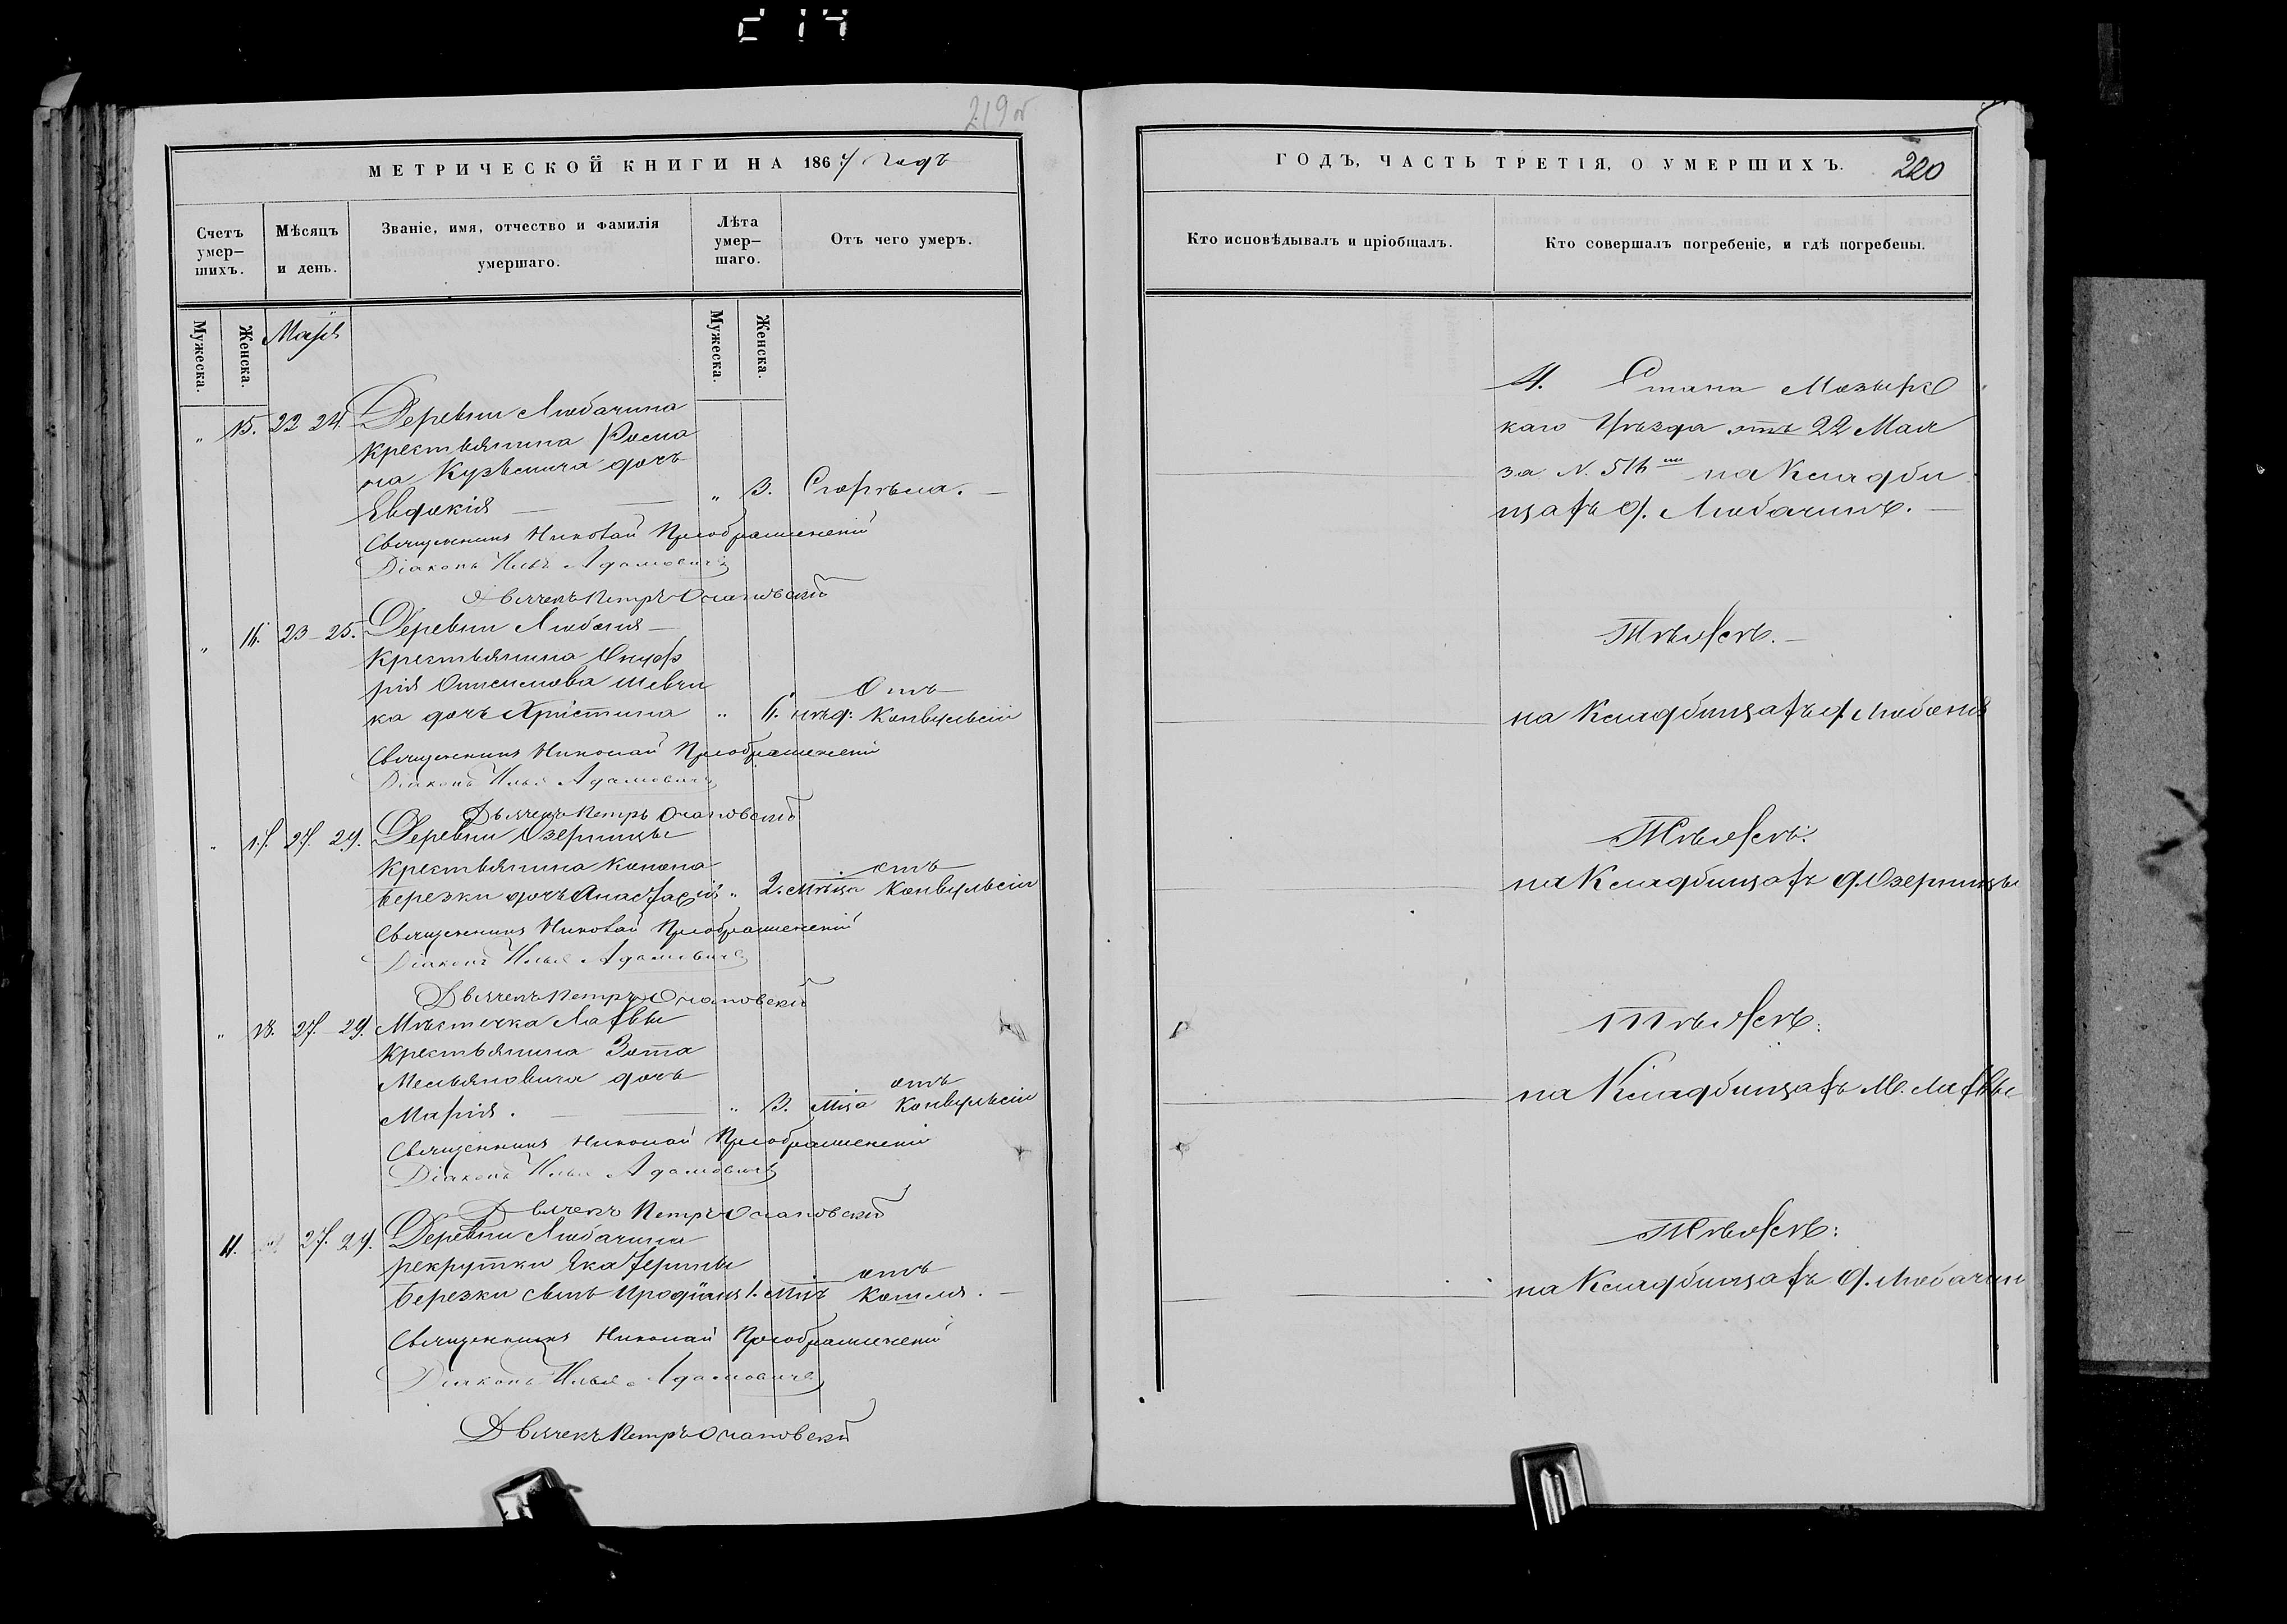 219 об
МЕТРИЧЕСКОЙ КНИГИ НА 1867 годъ
Счетъ умер-шихъ.
Мѣсяцъ и день.
Званіе, имя, отчество и фамилія умершаго.
Лѣта умер-шаго.
Отъ чего умеръ.
Мужеска.
Женска.
Май
Мужеска.
Женска.
" 15. 22 24. Деревни Любачина
крестьянина Рома
на Кузьмича дочь
Евдокія — " 3. Сгорѣла. —
Священникъ Николай Преображенскій
Діаконъ Илья Адамовичъ
Дьячекъ Петръ
" 16. 23 - 25. Деревни Любоня —
крестьянина Онуф
рія Онисимова Шевчи
ка дочь Христина " 6. нѣд: Отъ Конвульсіи
Священникъ Николай Преображенскій
Діаконъ Илья Адамовичъ
Дьячекъ Петръ
" 17. 27. 29. Деревни Озерницы
крестьянина Конона
Березки дочь Анастасія " 2. мѣсц отъ Конвульсіи
Священникъ Николай Преображенскій
Діаконъ Илья Адамовичъ
Дьячекъ Петръ
" 18. 27. - 29. Мѣстечка Лахвы
крестьянина Зота
Мельяновича дочь
Марія. — " 3. мца отъ Конвульсіи
Священникъ Николай Преображенскій
Діаконъ Илья Адамовичъ
Дьячекъ Петръ
11. " 27. 29. Деревни Любачина
рекрутки Екатерины
Березки сынъ 1. отъ Кошля. —
Священникъ Николай Преображенскій
Діаконъ Илья Адамовичъ
Дьячекъ Петръ
ГОДЪ, ЧАСТЬ ТРЕТІЯ, О УМЕРШИХЪ.
220
Кто исповѣдывалъ и пріобщалъ.
Кто совершалъ погребеніе, и гдѣ погребены.
4. Стана Мозырс
каго Уѣзда отъ 22 Мая
за N. 516 на Кладби
щахъ д. Любачинъ. —
Тѣ же. —
на Кладбищахъ д. Любоня
Тѣ же:
на Кладбищахъ д. Озерницы
Тѣ же:
на Кладбищахъ М. Лахвы
Тѣ же:
на Кладбищахъ д. Любачин